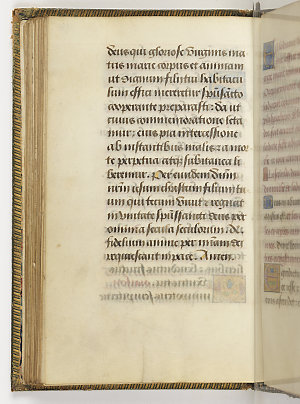 deus qui gloriose virginis ma
tris marie corpus et animam
ut dignum filii tui habitacu
lum effici mereretur spūsancto
cooperante preparasti: da ut
cuius commemoratione leta
mur: eius pia intercessione
ab instantibus malis: a mor
te perpetua atq; subitanea li
beremur. Per eundem dūm
nrūm iesum christum filium tu
um qui tecum vivit et regnat
in unitate spūssancti deus per
omnia secula seculorum. A.
fidelium anime per mīam dei
requiescant in pace. Amen.